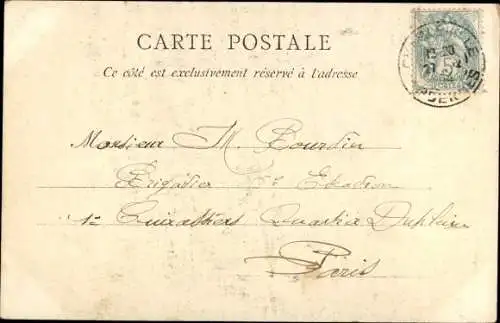 CARTE POSTALE
Ce côté est exclusivement réservé à l'adresse
Monsieur M. Bourdin
Brigadier Escadron
1er Cuirassiers Quartier Dupleix
Paris